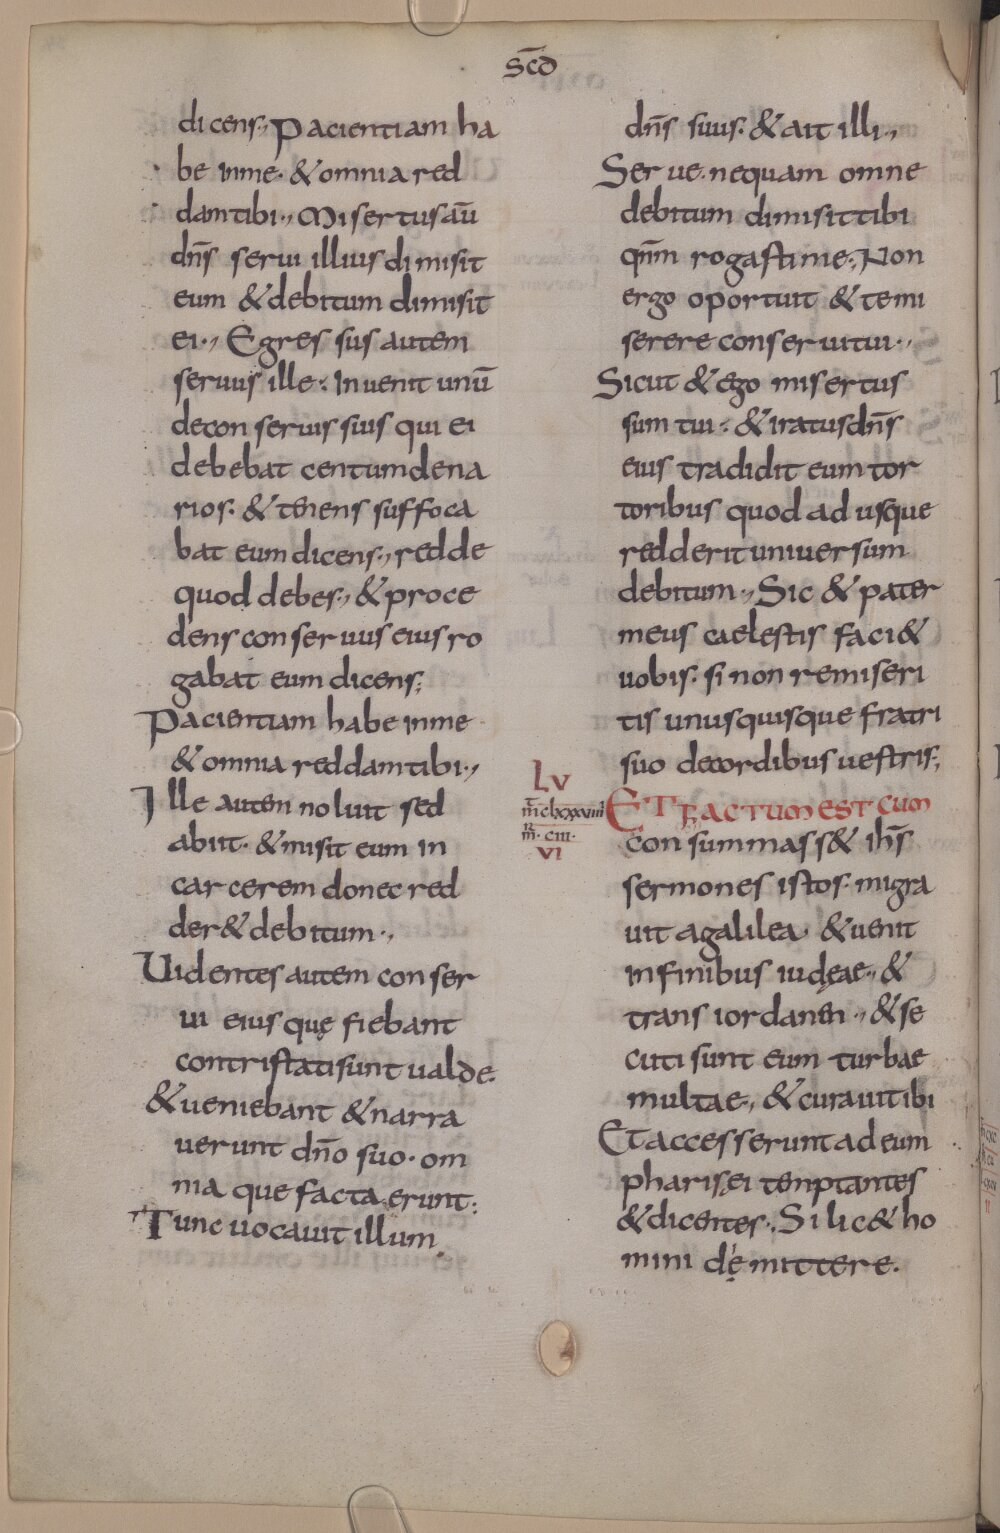 sc̄d
dicens;, Pacientiam ha
be inme· &omnia red
dam tibi·, Misertus aū
dn̄s serui illius dimisit
eum &debitum dimisit
ei·, Egressus autem
seruus ille: Inuenit unū
decon seruis suis qui ei
debebat centum dena
rios: & tenens suffoca
bat eum dicens·, redde
quod debes·, &proce
dens conseruus eius ro
gabat eum dicens;
Pacientiam habe inme
&omnia reddam tibi·,
Ille autem noluit sed
abiit· &misit eum in
carcerem donec red
der& debitum·,
Uidentes autem conser
ui eius quę fiebant
contristati sunt ualde·
&ueniebant &narra
uerunt dn̄o suo· om
nia que facta erunt:
Tunc uocauit illum
dn̄s suus: &ait illi·,
Serue· nequam omne
debitum dimisi tibi
qn̄m rogasti me; Non
ergo oportuit &temi
serere conserui tui·,
Sicut &ego misertus
sum tui: &iratus dn̄s
eius tradidit eum tor
toribus quod ad usque
redderit uniuersum
debitum·, Sic & pater
meus caelestis faci&
uobis: si non remiseri
tis unusquisque fratri
suo decordibus uestris;
LV
m̄ clxxxviiii
m̄· ciii·
VI
ET FACTUM EST CUM
con summass& ih̄s
sermones istos· migra
uit agalilea· &uenit
infinibus iudęae·, &
trans iordanen·, &se
cuti sunt eum turbae
multae·, &curauit ibi
Et accesserunt ad eum
pharisęi temptantes
&dicentes·, Si lic& ho
mini dęmittere·